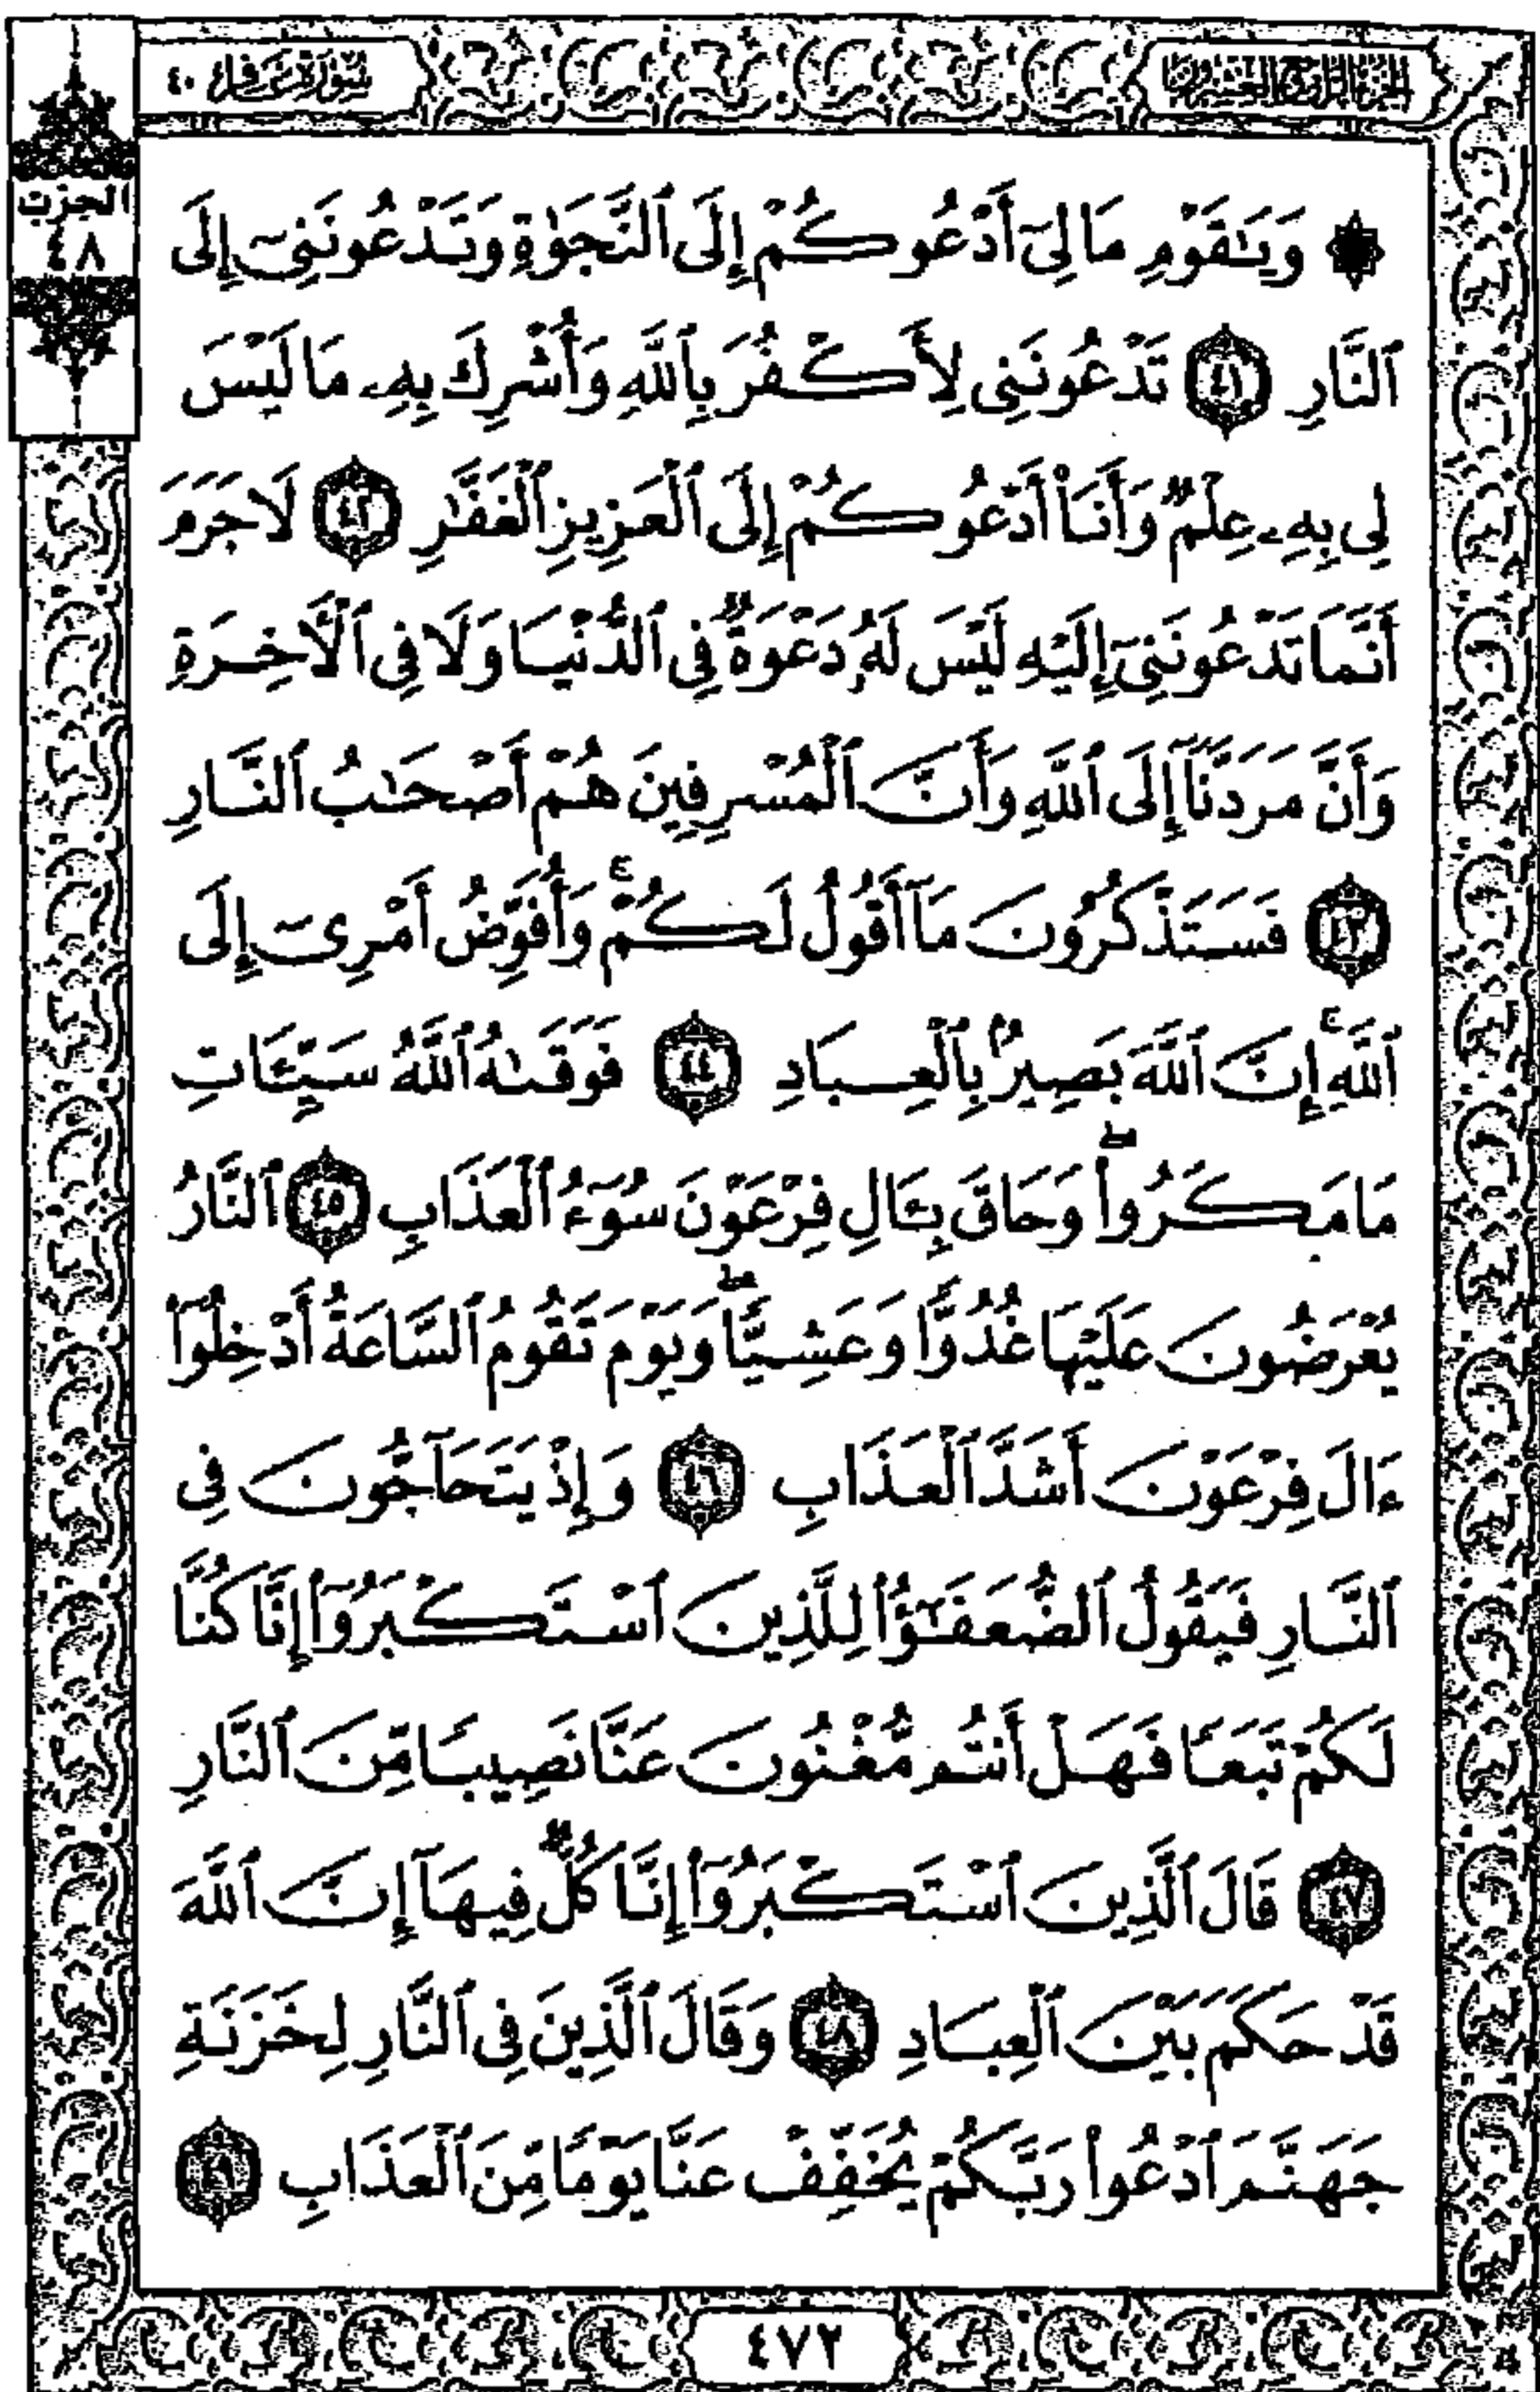 الجزء الرابع والعشرون
سورة غافر ٤٠
الحزب
٤٨
۞ وَيَـٰقَوْمِ مَا لِىٓ أَدْعُوكُمْ إِلَى ٱلنَّجَوٰةِ وَتَدْعُونَنِىٓ إِلَى
ٱلنَّارِ ٤١ تَدْعُونَنِى لِأَكْفُرَ بِٱللَّهِ وَأُشْرِكَ بِهِۦ مَا لَيْسَ
لِى بِهِۦ عِلْمٌ وَأَنَا۠ أَدْعُوكُمْ إِلَى ٱلْعَزِيزِ ٱلْغَفَّـٰرِ ٤٢ لَا جَرَمَ
أَنَّمَا تَدْعُونَنِىٓ إِلَيْهِ لَيْسَ لَهُۥ دَعْوَةٌ فِى ٱلدُّنْيَا وَلَا فِى ٱلْـَٔاخِرَةِ
وَأَنَّ مَرَدَّنَآ إِلَى ٱللَّهِ وَأَنَّ ٱلْمُسْرِفِينَ هُمْ أَصْحَـٰبُ ٱلنَّارِ
٤٣ فَسَتَذْكُرُونَ مَآ أَقُولُ لَكُمْ ۚ وَأُفَوِّضُ أَمْرِىٓ إِلَى
ٱللَّهِ ۚ إِنَّ ٱللَّهَ بَصِيرٌۢ بِٱلْعِبَادِ ٤٤ فَوَقَىٰهُ ٱللَّهُ سَيِّـَٔاتِ
مَا مَكَرُوا۟ ۖ وَحَاقَ بِـَٔالِ فِرْعَوْنَ سُوٓءُ ٱلْعَذَابِ ٤٥ ٱلنَّارُ
يُعْرَضُونَ عَلَيْهَا غُدُوًّا وَعَشِيًّا ۖ وَيَوْمَ تَقُومُ ٱلسَّاعَةُ أَدْخِلُوٓا۟
ءَالَ فِرْعَوْنَ أَشَدَّ ٱلْعَذَابِ ٤٦ وَإِذْ يَتَحَآجُّونَ فِى
ٱلنَّارِ فَيَقُولُ ٱلضُّعَفَـٰٓؤُا۟ لِلَّذِينَ ٱسْتَكْبَرُوٓا۟ إِنَّا كُنَّا
لَكُمْ تَبَعًا فَهَلْ أَنتُم مُّغْنُونَ عَنَّا نَصِيبًا مِّنَ ٱلنَّارِ
٤٧ قَالَ ٱلَّذِينَ ٱسْتَكْبَرُوٓا۟ إِنَّا كُلٌّ فِيهَآ إِنَّ ٱللَّهَ
قَدْ حَكَمَ بَيْنَ ٱلْعِبَادِ ٤٨ وَقَالَ ٱلَّذِينَ فِى ٱلنَّارِ لِخَزَنَةِ
جَهَنَّمَ ٱدْعُوا۟ رَبَّكُمْ يُخَفِّفْ عَنَّا يَوْمًا مِّنَ ٱلْعَذَابِ ٤٩
٤٧٢